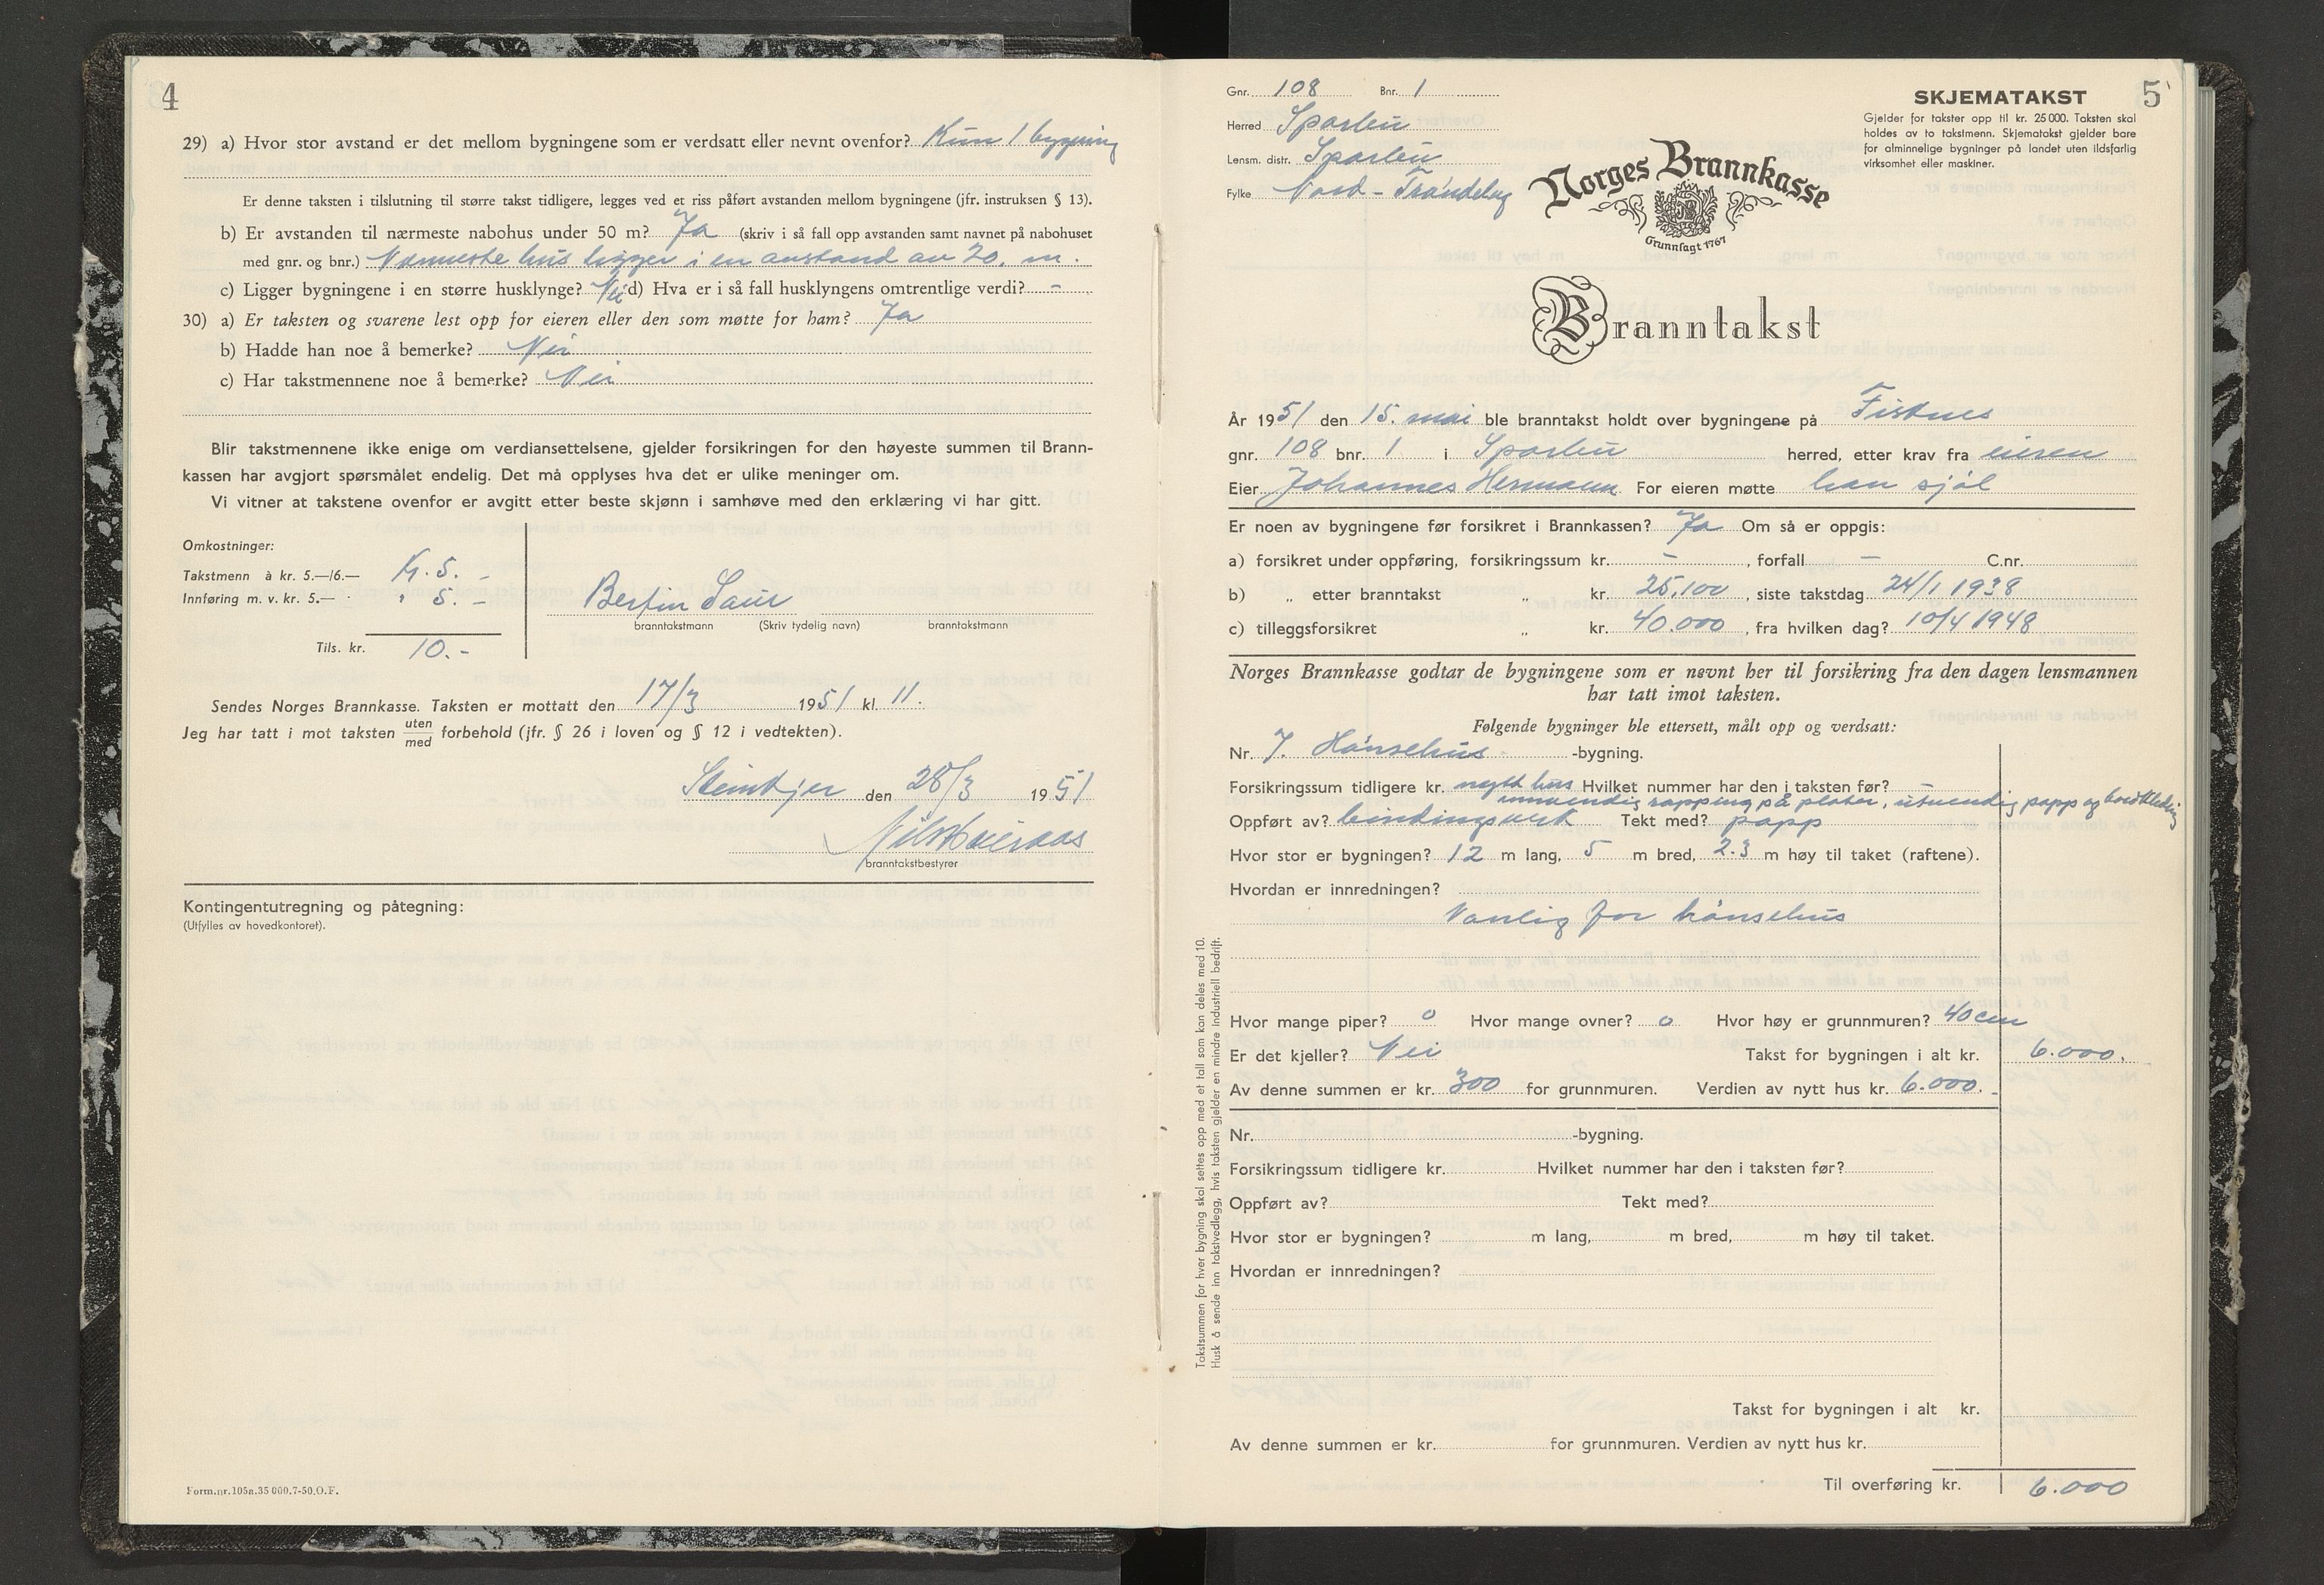 4
29) a) Hvor stor avstand er det mellom bygningene som er verdsatt eller nevnt ovenfor? Kun 1 bygning
Er denne taksten i tilslutning til større takst tidligere, legges ved et riss påført avstanden mellom bygningene (jfr. instruksen § 13).
b) Er avstanden til nærmeste nabohus under 50 m? Ja (skriv i så fall opp avstanden samt navnet på nabohuset
med gnr. og bnr.) Nærmeste hus ligger i en avstand av 20. m.
c) Ligger bygningene i en større husklynge? Nei d) Hva er i så fall husklyngens omtrentlige verdi? -
30) a) Er taksten og svarene lest opp for eieren eller den som møtte for ham? Ja
b) Hadde han noe å bemerke? Nei
c) Har takstmennene noe å bemerke? Nei
Blir takstmennene ikke enige om verdiansettelsene, gjelder forsikringen for den høyeste summen til Brann-
kassen har avgjort spørsmålet endelig. Det må opplyses hva det er ulike meninger om.
Vi vitner at takstene ovenfor er avgitt etter beste skjønn i samhøve med den erklæring vi har gitt.
Omkostninger:
Takstmenn à kr. 5.—/6.— Kr. 5. -
Innføring m. v. kr. 5.— " 5. -
Tils. kr. 10.-
Bertin Saur
branntakstmann (Skriv tydelig navn) branntakstmann
Sendes Norges Brannkasse. Taksten er mottatt den 17/3 1951 kl. 11.
Jeg har tatt i mot taksten uten/med forbehold (jfr. § 26 i loven og § 12 i vedtekten).
Steinkjer den 28/3 1951
branntakstbestyrer
Kontingentutregning og påtegning:
(Utfylles av hovedkontoret).
Form.nr.105a.35 000.7-50.O.F.
5
Gnr. 108 Bnr. 1
Herred Sparbu
Lensm. distr. Sparbu
Fylke Nord-Trøndelag
Norges Brannkasse
Grunnlagt 1767
SKJEMATAKST
Gjelder for takster opp til kr. 25 000. Taksten skal
holdes av to takstmenn. Skjematakst gjelder bare
for alminnelige bygninger på landet uten ildsfarlig
virksomhet eller maskiner.
Branntakst
År 1951 den 15. mai ble branntakst holdt over bygningene på Fisknes
gnr. 108 bnr. 1 i Sparbu herred, etter krav fra eieren
Eier Johannes Hermann For eieren møtte han sjøl
Er noen av bygningene før forsikret i Brannkassen? Ja Om så er oppgis:
a) forsikret under oppføring, forsikringssum kr. - , forfall - C.nr.
b) „ etter branntakst „ kr. 25.100 , siste takstdag 24/1 1938
c) tilleggsforsikret „ kr. 40.000 , fra hvilken dag? 10/4 1948
Norges Brannkasse godtar de bygningene som er nevnt her til forsikring fra den dagen lensmannen
har tatt imot taksten.
Følgende bygninger ble ettersett, målt opp og verdsatt:
Nr. 7. Hønsehus -bygning.
Forsikringssum tidligere kr. nytt hus Hvilket nummer har den i taksten før? -
innvendig rapping på plater, utvendig papp og bordkledn
Oppført av? bindingsverk Tekt med? papp
Hvor stor er bygningen? 12 m lang, 5 m bred, 2.3 m høy til taket (raftene).
Hvordan er innredningen?
Vanlig for hønsehus
Hvor mange piper? 0 Hvor mange ovner? 0 Hvor høy er grunnmuren? 40 cm
Er det kjeller? Nei Takst for bygningen i alt kr. 6.000.
Av denne summen er kr. 300 for grunnmuren. Verdien av nytt hus kr. 6.000.-
Nr. -bygning.
Forsikringssum tidligere kr. Hvilket nummer har den i taksten før?
Oppført av? Tekt med?
Hvor stor er bygningen? m lang, m bred, m høy til taket.
Hvordan er innredningen?
Takst for bygningen i alt kr.
Av denne summen er kr. for grunnmuren. Verdien av nytt hus kr.
Til overføring kr. 6.000
Takstsummen for hver bygning skal settes opp med et tall som kan deles med 10.
Husk å sende inn takstvedlegg, hvis taksten gjelder en mindre industriell bedrift.